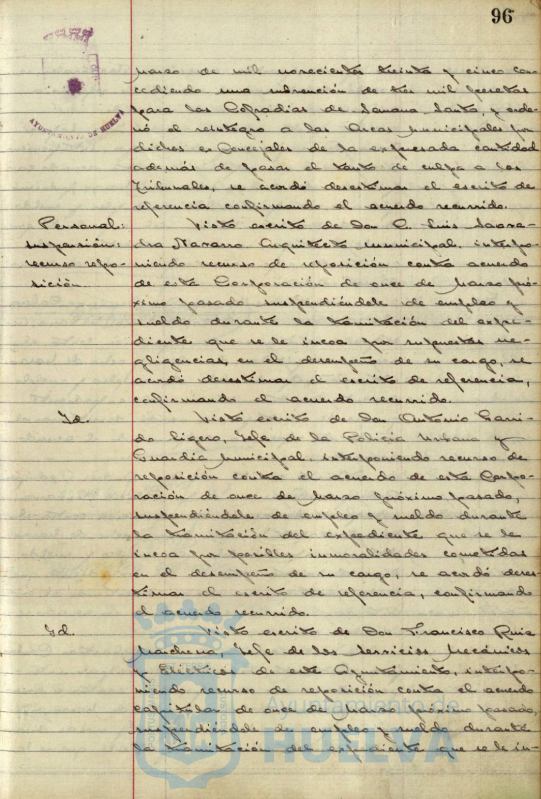 96
AYUNTAMIENTO DE HUELVA
Marzo de mil novecientos treinta y cinco con-
cediendo una subvención de tres mil pesetas
para las Cofradias de Semana Santa, y orde-
nó el reintegro a las Arcas Municipales por
dichos ex Concejales de la expresada cantidad
además de pasar el tanto de culpa a los
Tribunales, se acordó desestimar el escrito de
referencia confirmando el acuerdo recurrido.
Personal:
suspensión:
recurso repo-
sición.
Visto escrito de Don L. Luis Saave-
dra Navarro Arquitecto municipal, interpo-
niendo recurso de reposición contra acuerdo
de esta Corporación de once de Marzo pró-
ximo pasado suspendiéndole de empleo y
sueldo durante la tramitación del expe-
diente que se le incoa por supuestas ne-
gligencias, en el desempeño de su cargo, se
acordó desestimar el escrito de referencia,
confirmando el acuerdo recurrido.
Id.
Visto escrito de Don Antonio Garri-
do Ligero, Jefe de la Policia Urbana y
Guardia Municipal, interponiendo recurso de
reposición contra el acuerdo de esta Corpo-
ración de once de Marzo próximo pasado,
suspendiéndole de empleo y sueldo durante
la tramitación del expediente que se le
incoa por posibles inmoralidades cometidas
en el desempeño de su cargo, se acordó deses-
timar el escrito de referencia, confirmando
el acuerdo recurrido.
Id.
Visto escrito de Don Francisco Ruiz
Marchena, Jefe de los Servicios Mecánicos
y Eléctricos de este Ayuntamiento, interpo-
niendo recurso de reposición contra el acuerdo
capitular de once de Marzo próximo pasado,
suspendiéndole de empleo y sueldo durante
la tramitación del expediente que se le in-
Ayuntamiento de
HUELVA